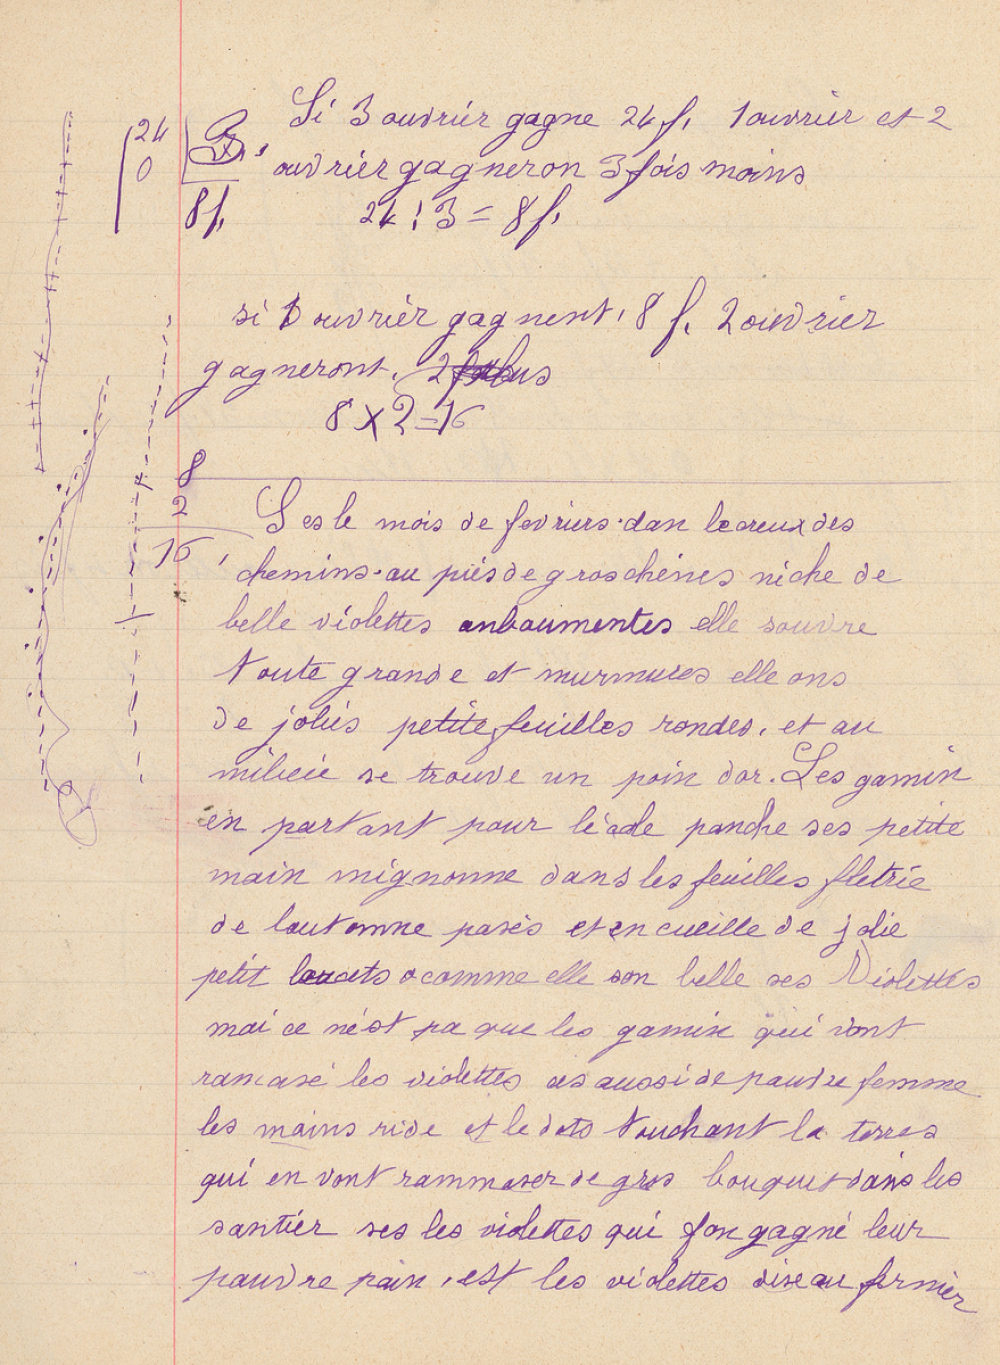 Si 3 ouvriér gagne 24 f, 1 ouvriér et 2
24
0
ouvriér gagneron 3 fois moins
8 f,
24 : 3 = 8 f,
si 1 ouvriér gagnent, 8 f, 2 ouvriér
gagneront, 2
8 X 2 = 16
8
2
16
Ses le mois de fevriers dan le creux des
chemins au piés de gros chénes niche de
belle violettes anbaumentes elle souvre
toute grande et murmures elle ons
de joliés petite feuilles rondes, et au
milieie se trouve un poin dor. Les gamin
en partant pour lécole panche ses petite
main mignonne dans les feuilles fletrie
de lautomne pasés et en cueille de jolie
petit o comme elle son belle ses violettes
mai ce nést pa que les gamin qui vont
ramasé les violettes es aussi de pauvre femme
les mains ride et le dots touchant la terres
qui en vont rammaser de gros bouquet dans les
santiér ses les violettes qui fon gagné leur
pauvre pain, est les violettes dise au fermiér